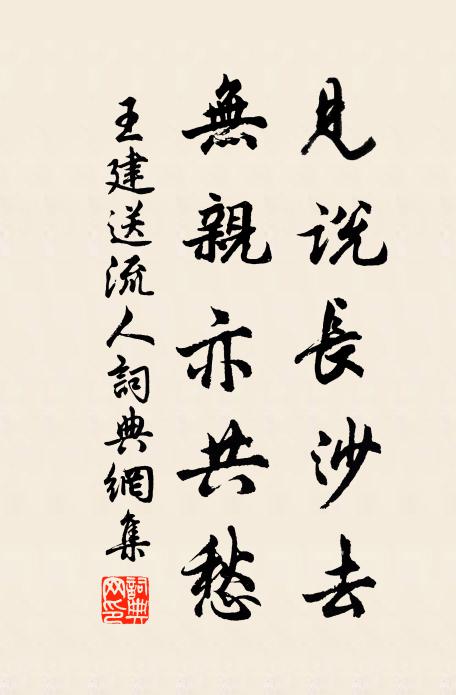 見説長沙去
無親亦共愁
王建送流人詞典網集
詞典網印